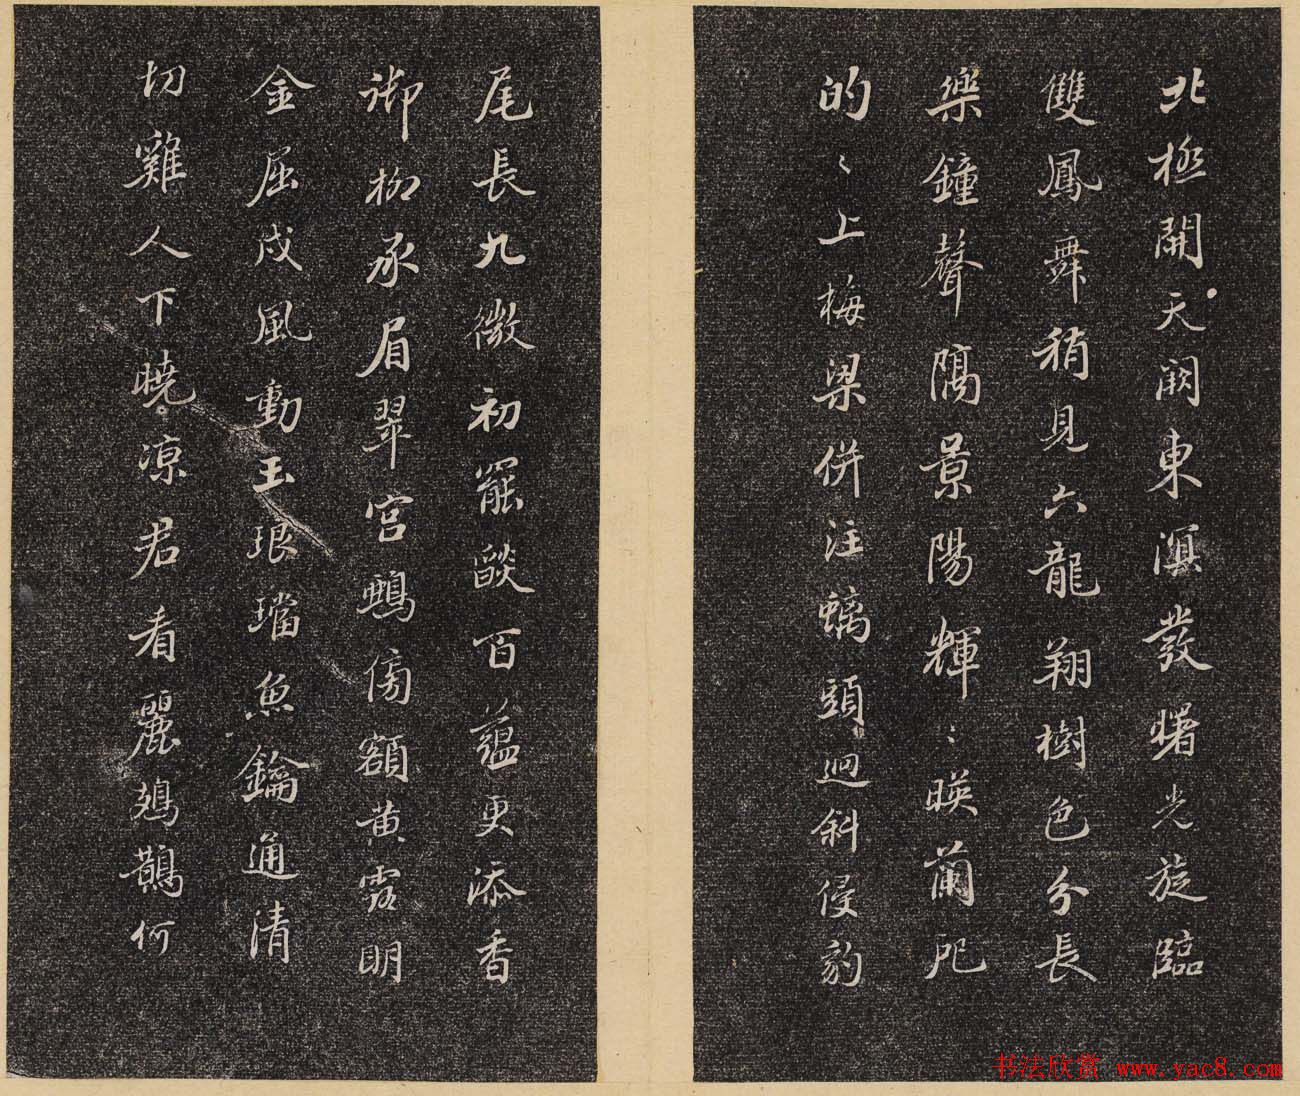 北極開天闕東溟發曙光旋臨
雙鳳舞稍見六龍翔樹色分長
樂鐘聲隔景陽輝〻暎蘭戺
的〻上梅梁併注螭頭迴斜侵豹
尾長九微初罷燄百蘊更添香
御柳承眉翠宮鵶傍額黃露明
金屈戍風動玉琅璫魚鑰通清
切雞人下曉凉君看麗鳷鵲何
书法欣赏 www.yac8.com